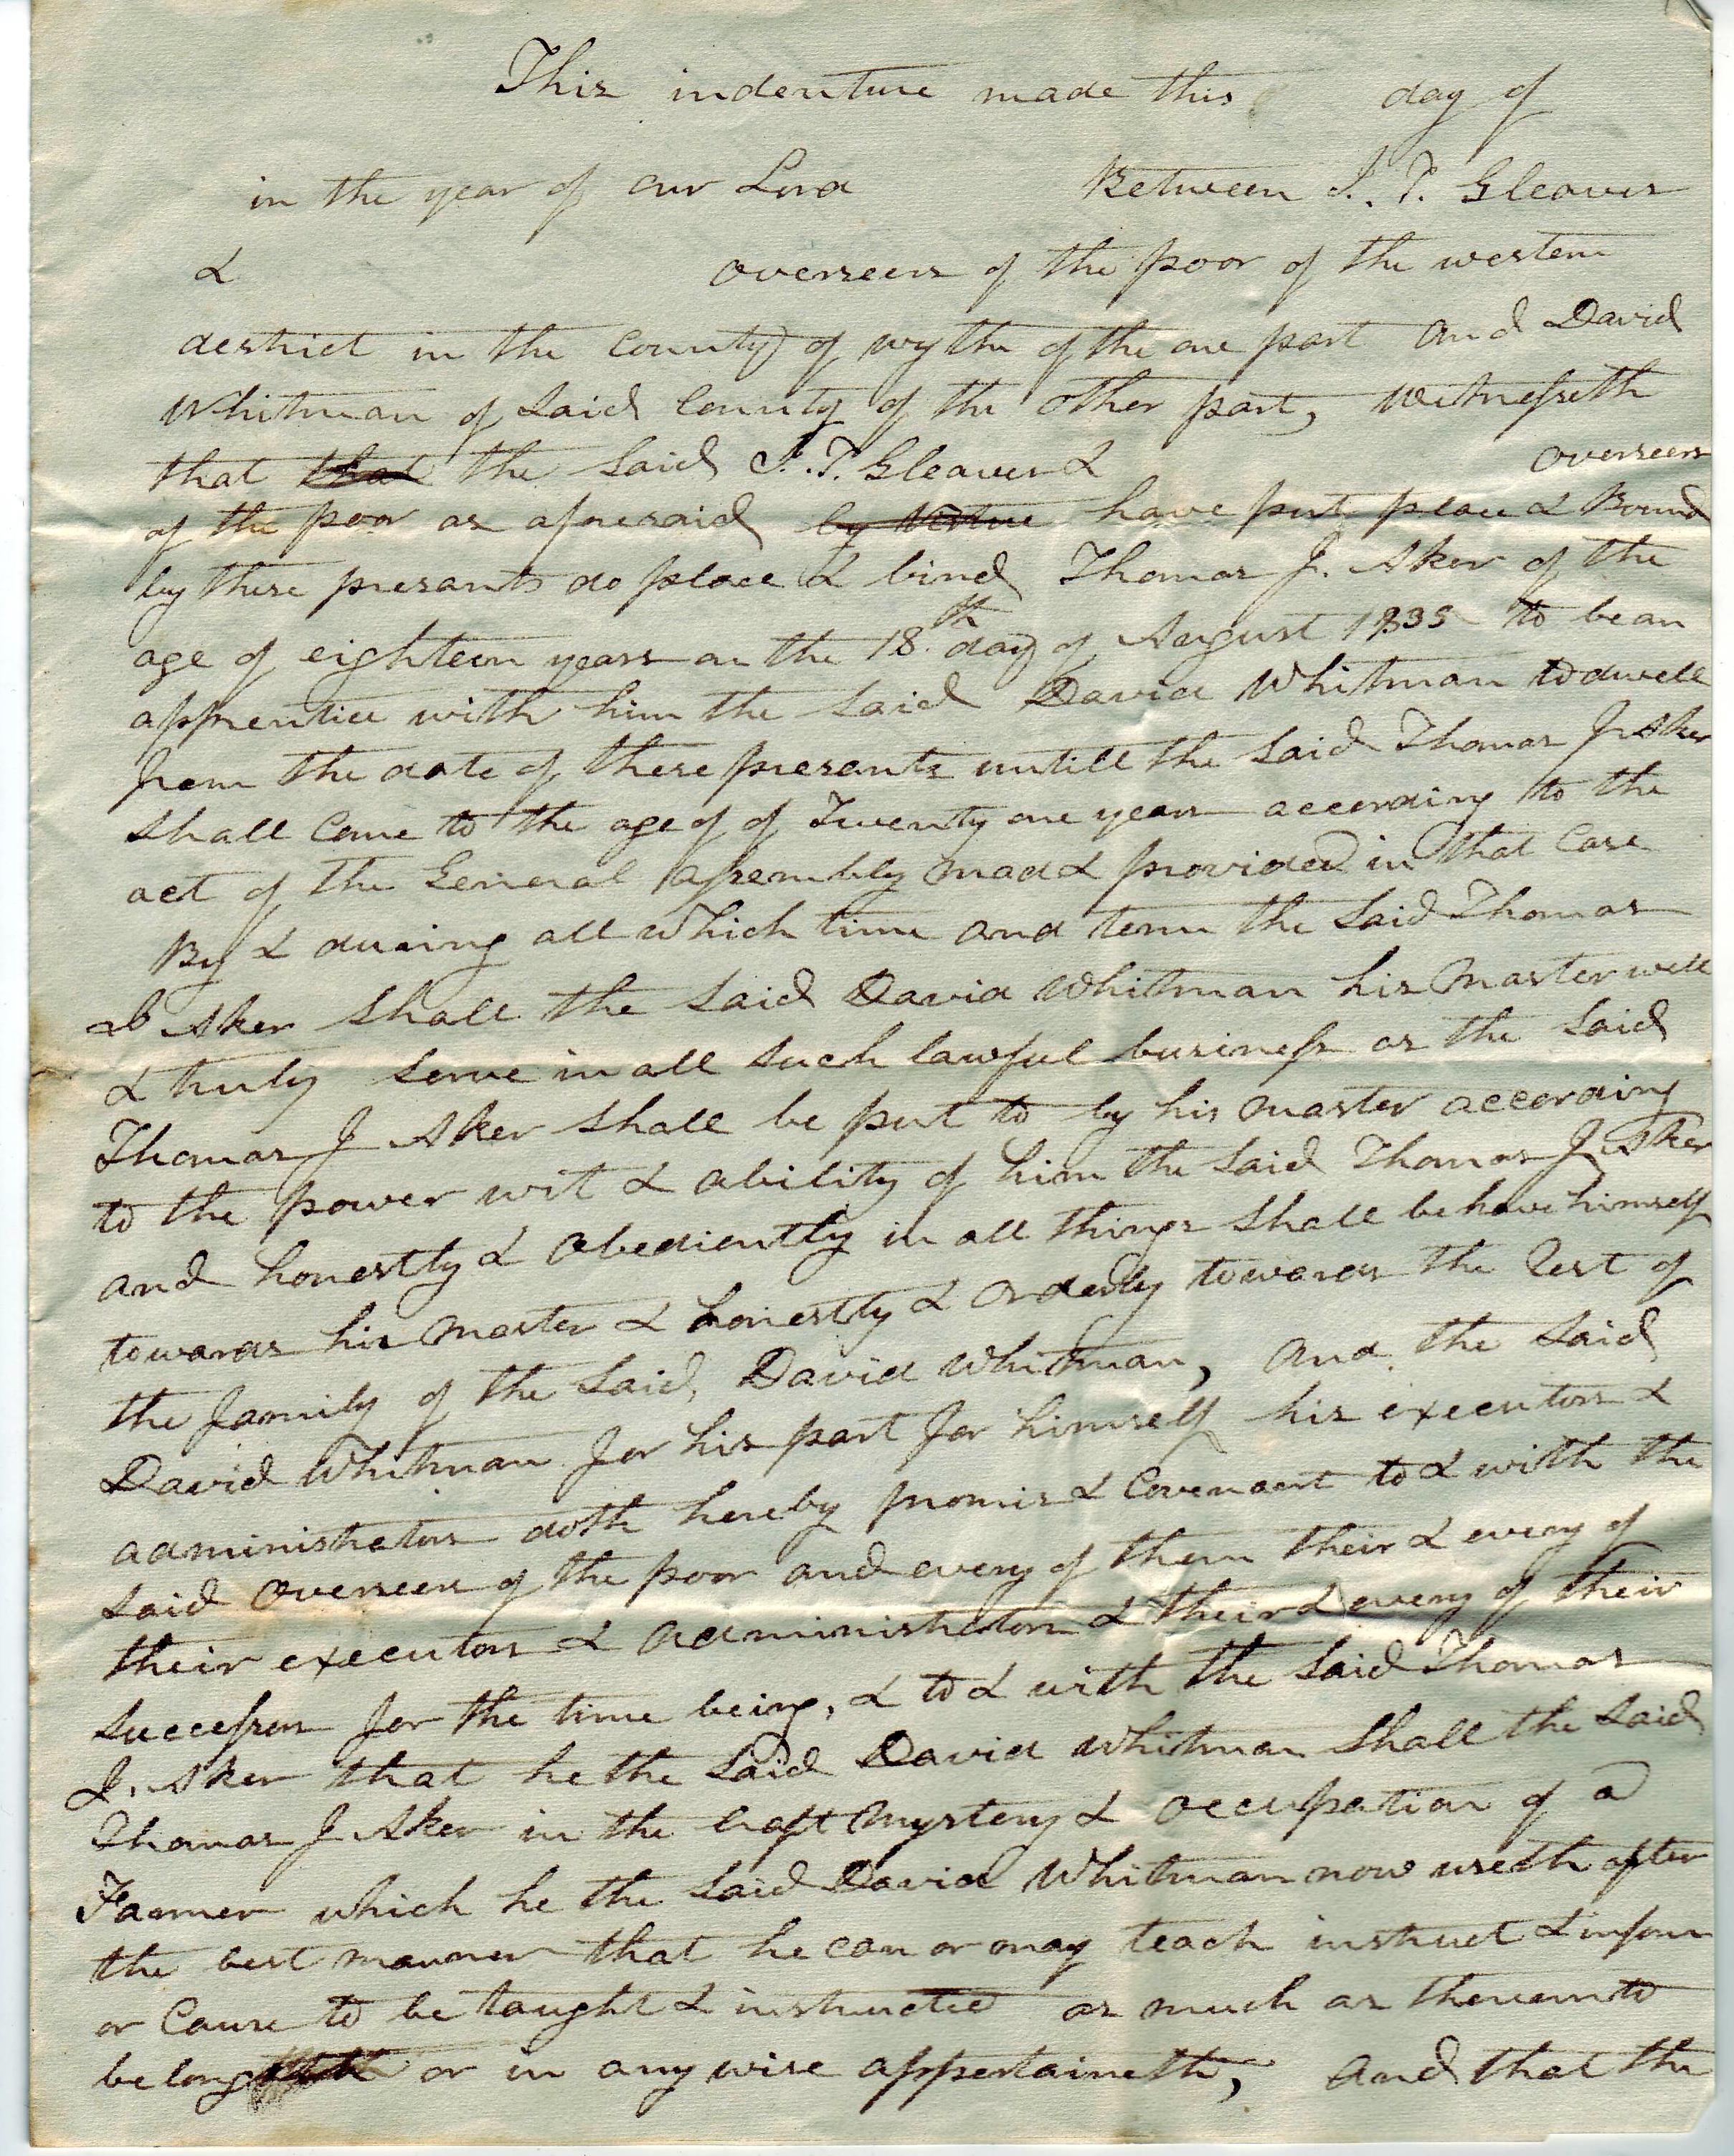 This indenture made this day of
in the year of our Lord Between J. T. Gleaves
& overseers of the poor of the western
destrict in the County of wythe of the one part and David
Whitman of said County of the other part, Witnesseth
that that the said J. T. Gleaves & overseers
of the poor as aforesaid by virtue have put place & Bound
by these presants do place & bind Thomas J. Aker of the
age of eighteen years on the 18th day of August 1835 to be an
apprentice with him the said David Whitman to dwell
from the date of these presants untill the said Thomas J Aker
shall Come to the age of of Twenty one years according to the
act of the General assembly mad & provided in that Case
By & during all which time and term the said Thomas
J. Aker shall the said David Whitman his Master well
& truly serve in all such lawful business as the said
Thomas J Aker shall be put to by his master according
to the power wit & ability of him the said Thomas J Aker
and honestly & obediently in all things shall behave himself
towards his Master & honestly & orderly towards the Rest of
the family of the said David Whitman, and the said
David Whitman for his part for himself his executors &
administrators doth hereby promis & Covenant to & with the
said overseers of the poor and every of them their & every of
their executors & administrators & their & every of their
successors for the time being, & to & with the said Thomas
J. Aker that he the said David Whitman shall the said
Thomas J Aker in the Craft Mystery & occupation of a
Farmer which he the said David Whitman now useth after
the best manner that he can or may teach instruct & inform
or Cause to be taught & instructed as much as thereunto
belongeth or in any wise appertaineth, and that the